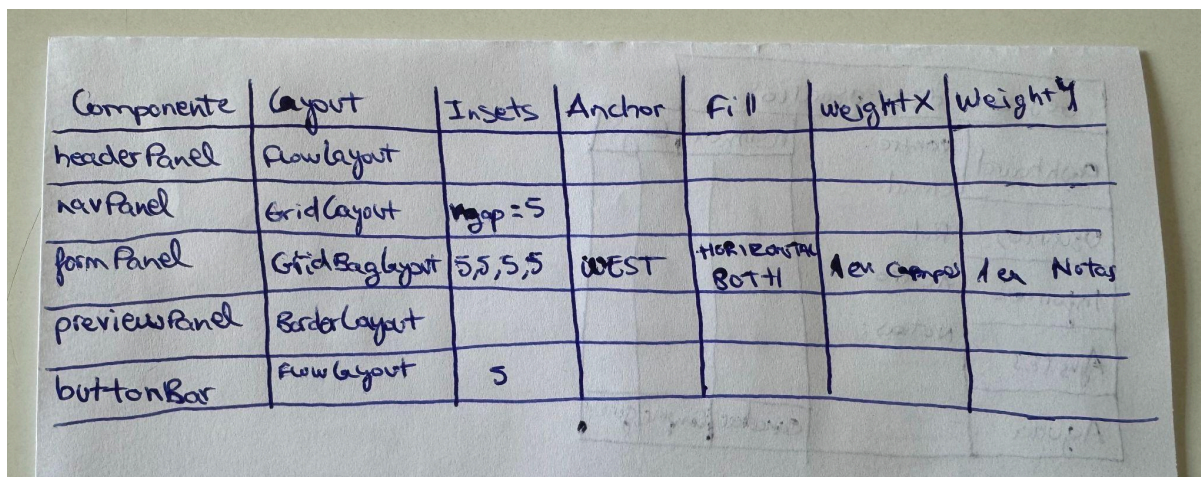 Componente Layout Insets Anchor Fill weightX Weight Y
headerPanel FlowLayout
navPanel GridLayout gap=5
formPanel GridBagLayout 5,5,5,5 WEST HORIZONTAL BOTH 1 en campos 1 en Notas
previewPanel BorderLayout
buttonBar FlowLayout 5